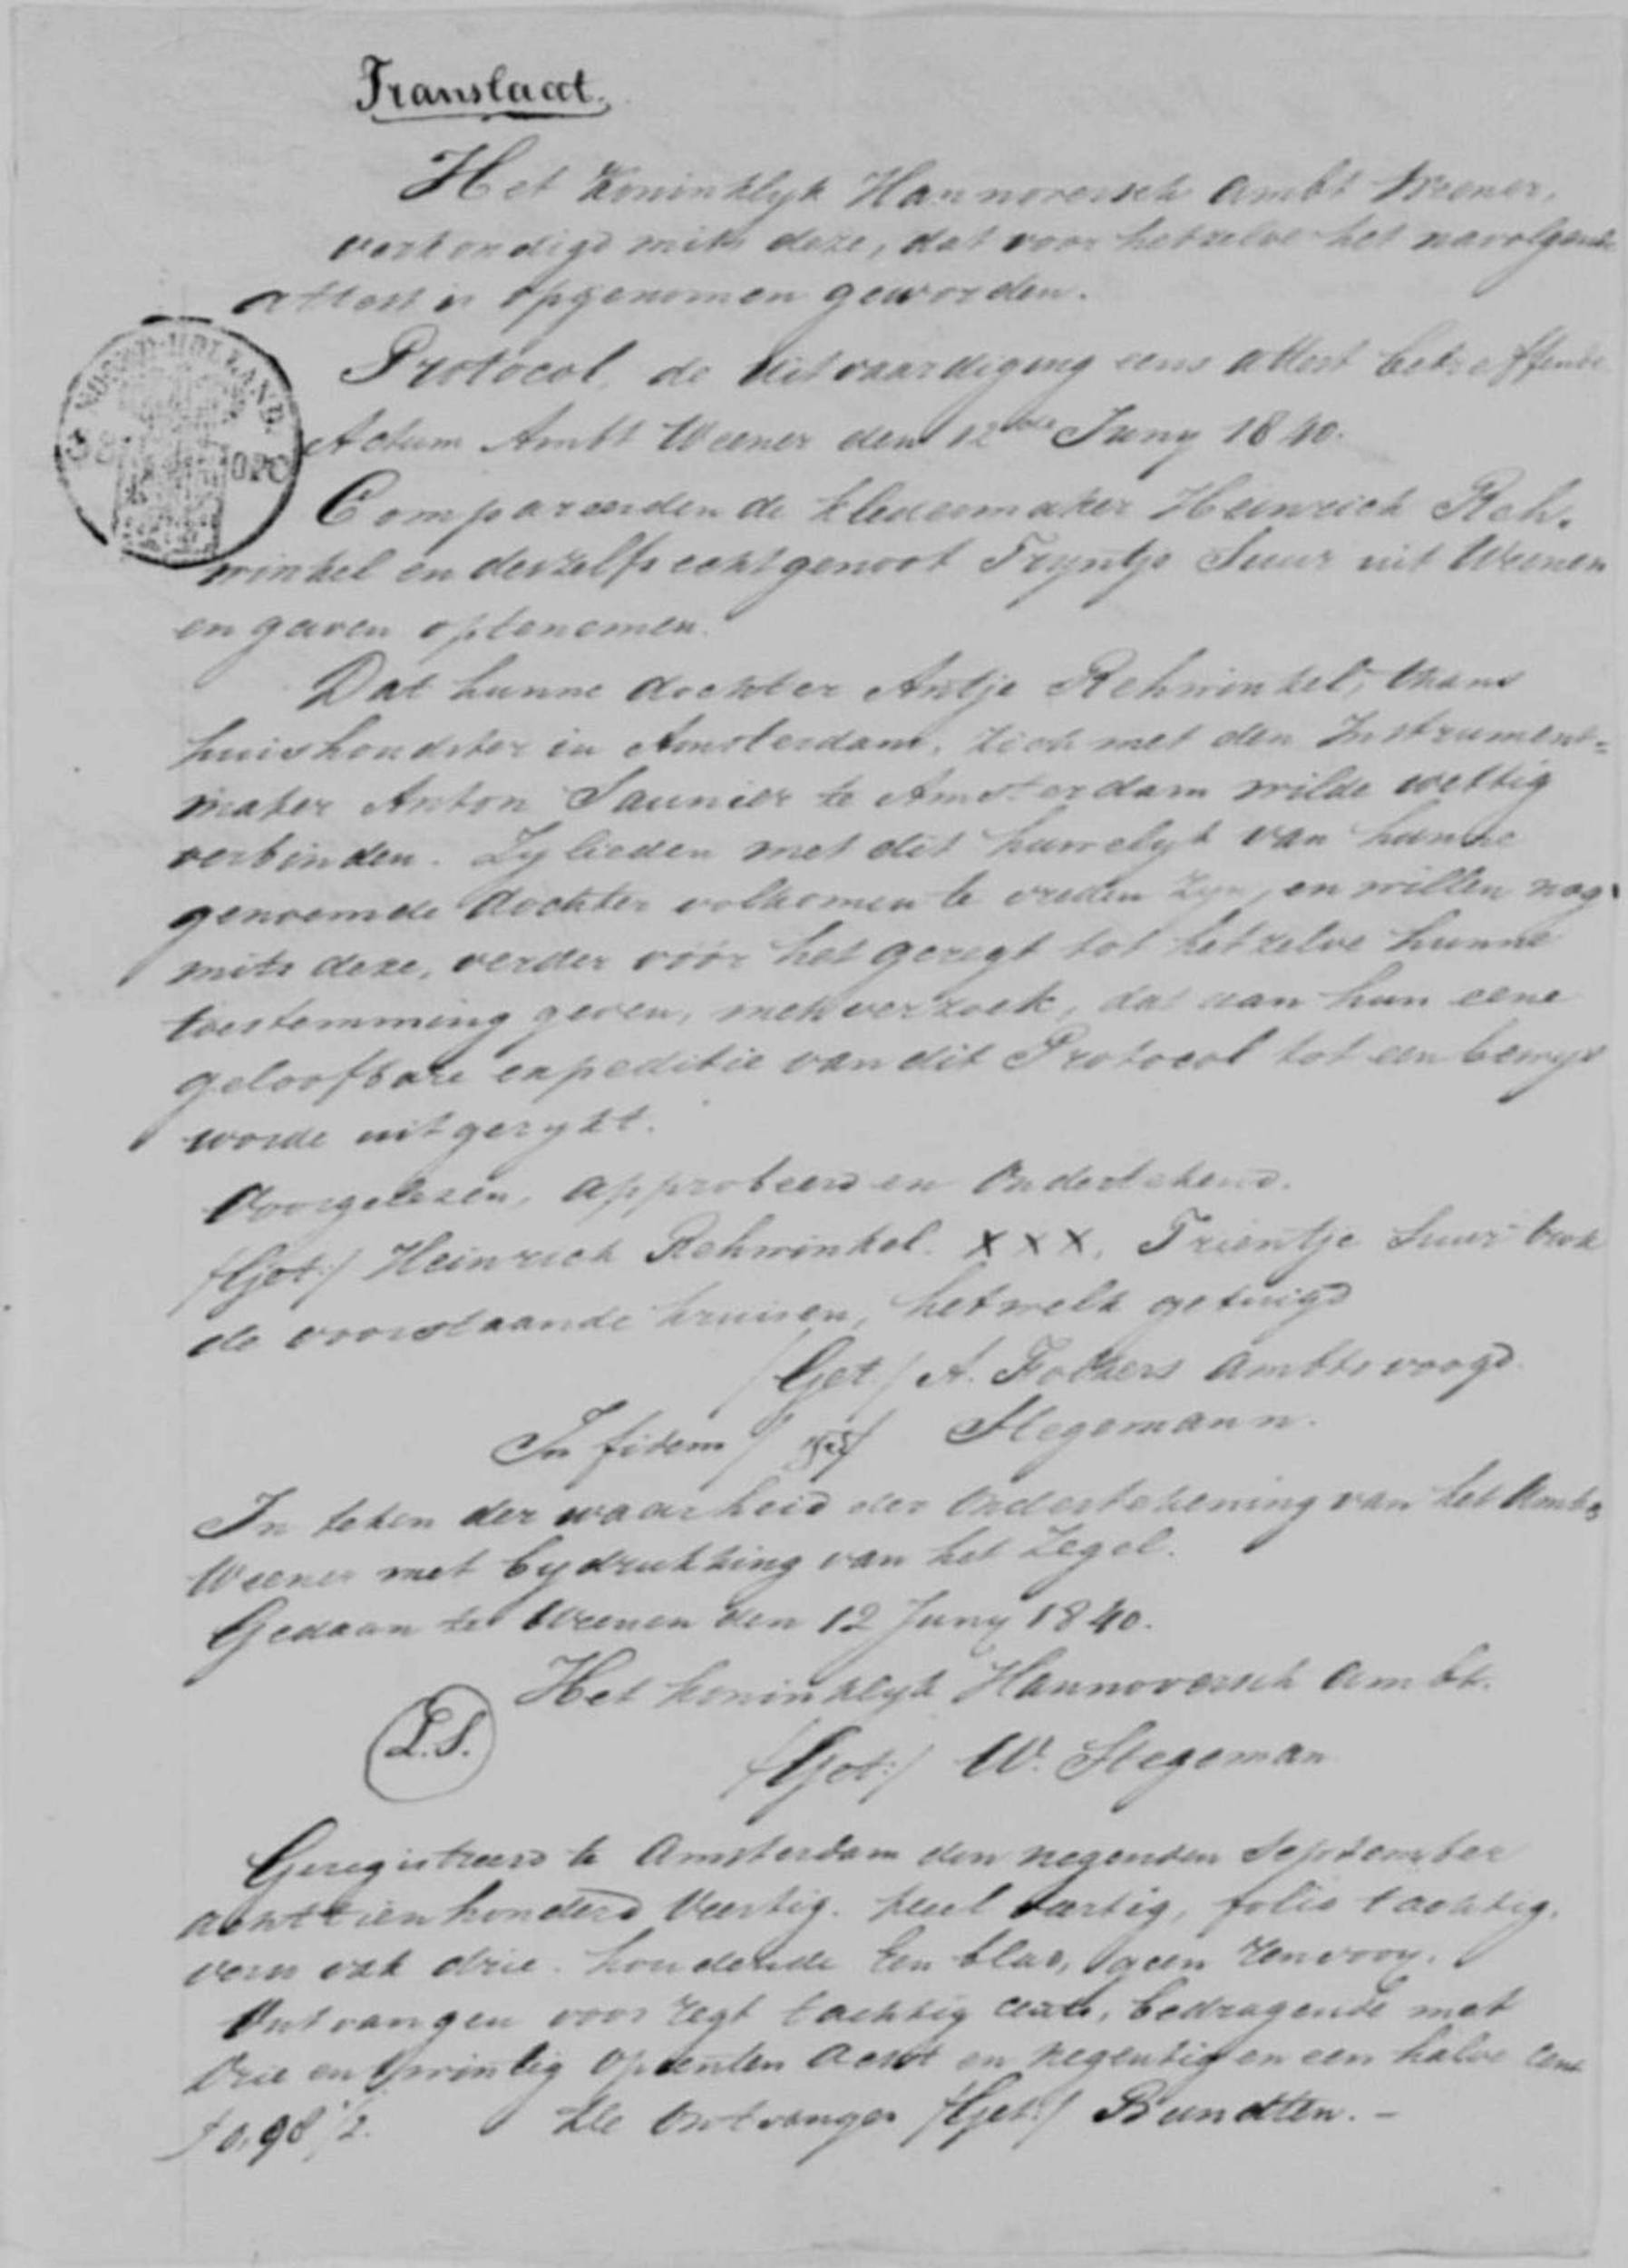 Translaat.
Het Koninklyk Hannoversch Ambt Weener,
verkondigd mits deze, dat voor hetzelve het navolgende
attest is opgenomen geworden.
Protocol, de uitvaardiging eens attest betreffende
NOORD-HOLLAND
Actum Ambt Weener den 12de Juny 1840.
Compareerden de kledermaker Heinrich Reh-
winkel en deszelfs echtgenoot Tryntje Suur uit Weener
en gaven optenemen.
Dat hunne dochter Antje Rehwinkel, thans
huishoudster in Amsterdam, zich met den Instrument=
maker Anton Saunier te Amsterdam wilde wettig
verbinden. Zylieden met dit huwelyk van hunne
genoemde dochter volkomen te vreden zyn, en willen nog
mits deze, verder voor het geregt tot hetzelve hunne
toestemming geven, met verzoek, dat aan hun eene
geloofbare expeditie van dit Protocol tot een bewys
worde uitgerykt.
Voorgelezen, approbeerd en ondertekend.
/Get:/ Heinrich Rehwinkel. XXX. Trientje Suur
de voorstaande kruisen, hetwelk getuigd
/Get:/ A. Fokkers Ambtsvoogd
In fidem /get/ Stegemann.
In teken der waarheid der ondertekening van het Ambt
Weener met bydrukking van het Zegel.
Gedaan te Weener den 12 Juny 1840.
Het koninklyk Hannoversch Ambt.
L.S.
/Get:/ W. Stegeman
Geregistreerd te Amsterdam den negenden September
achttienhonderd Veertig. deel veertig, folio tachtig,
verso vak drie. houdende Een blad, geen renvooy.
Ontvangen voor regt tachtig cents, bedragende met
drie en twintig opcenten acht en negentig en een halve cent
f 0,98 1/2. De Ontvanger /Get:/ Bundten. -